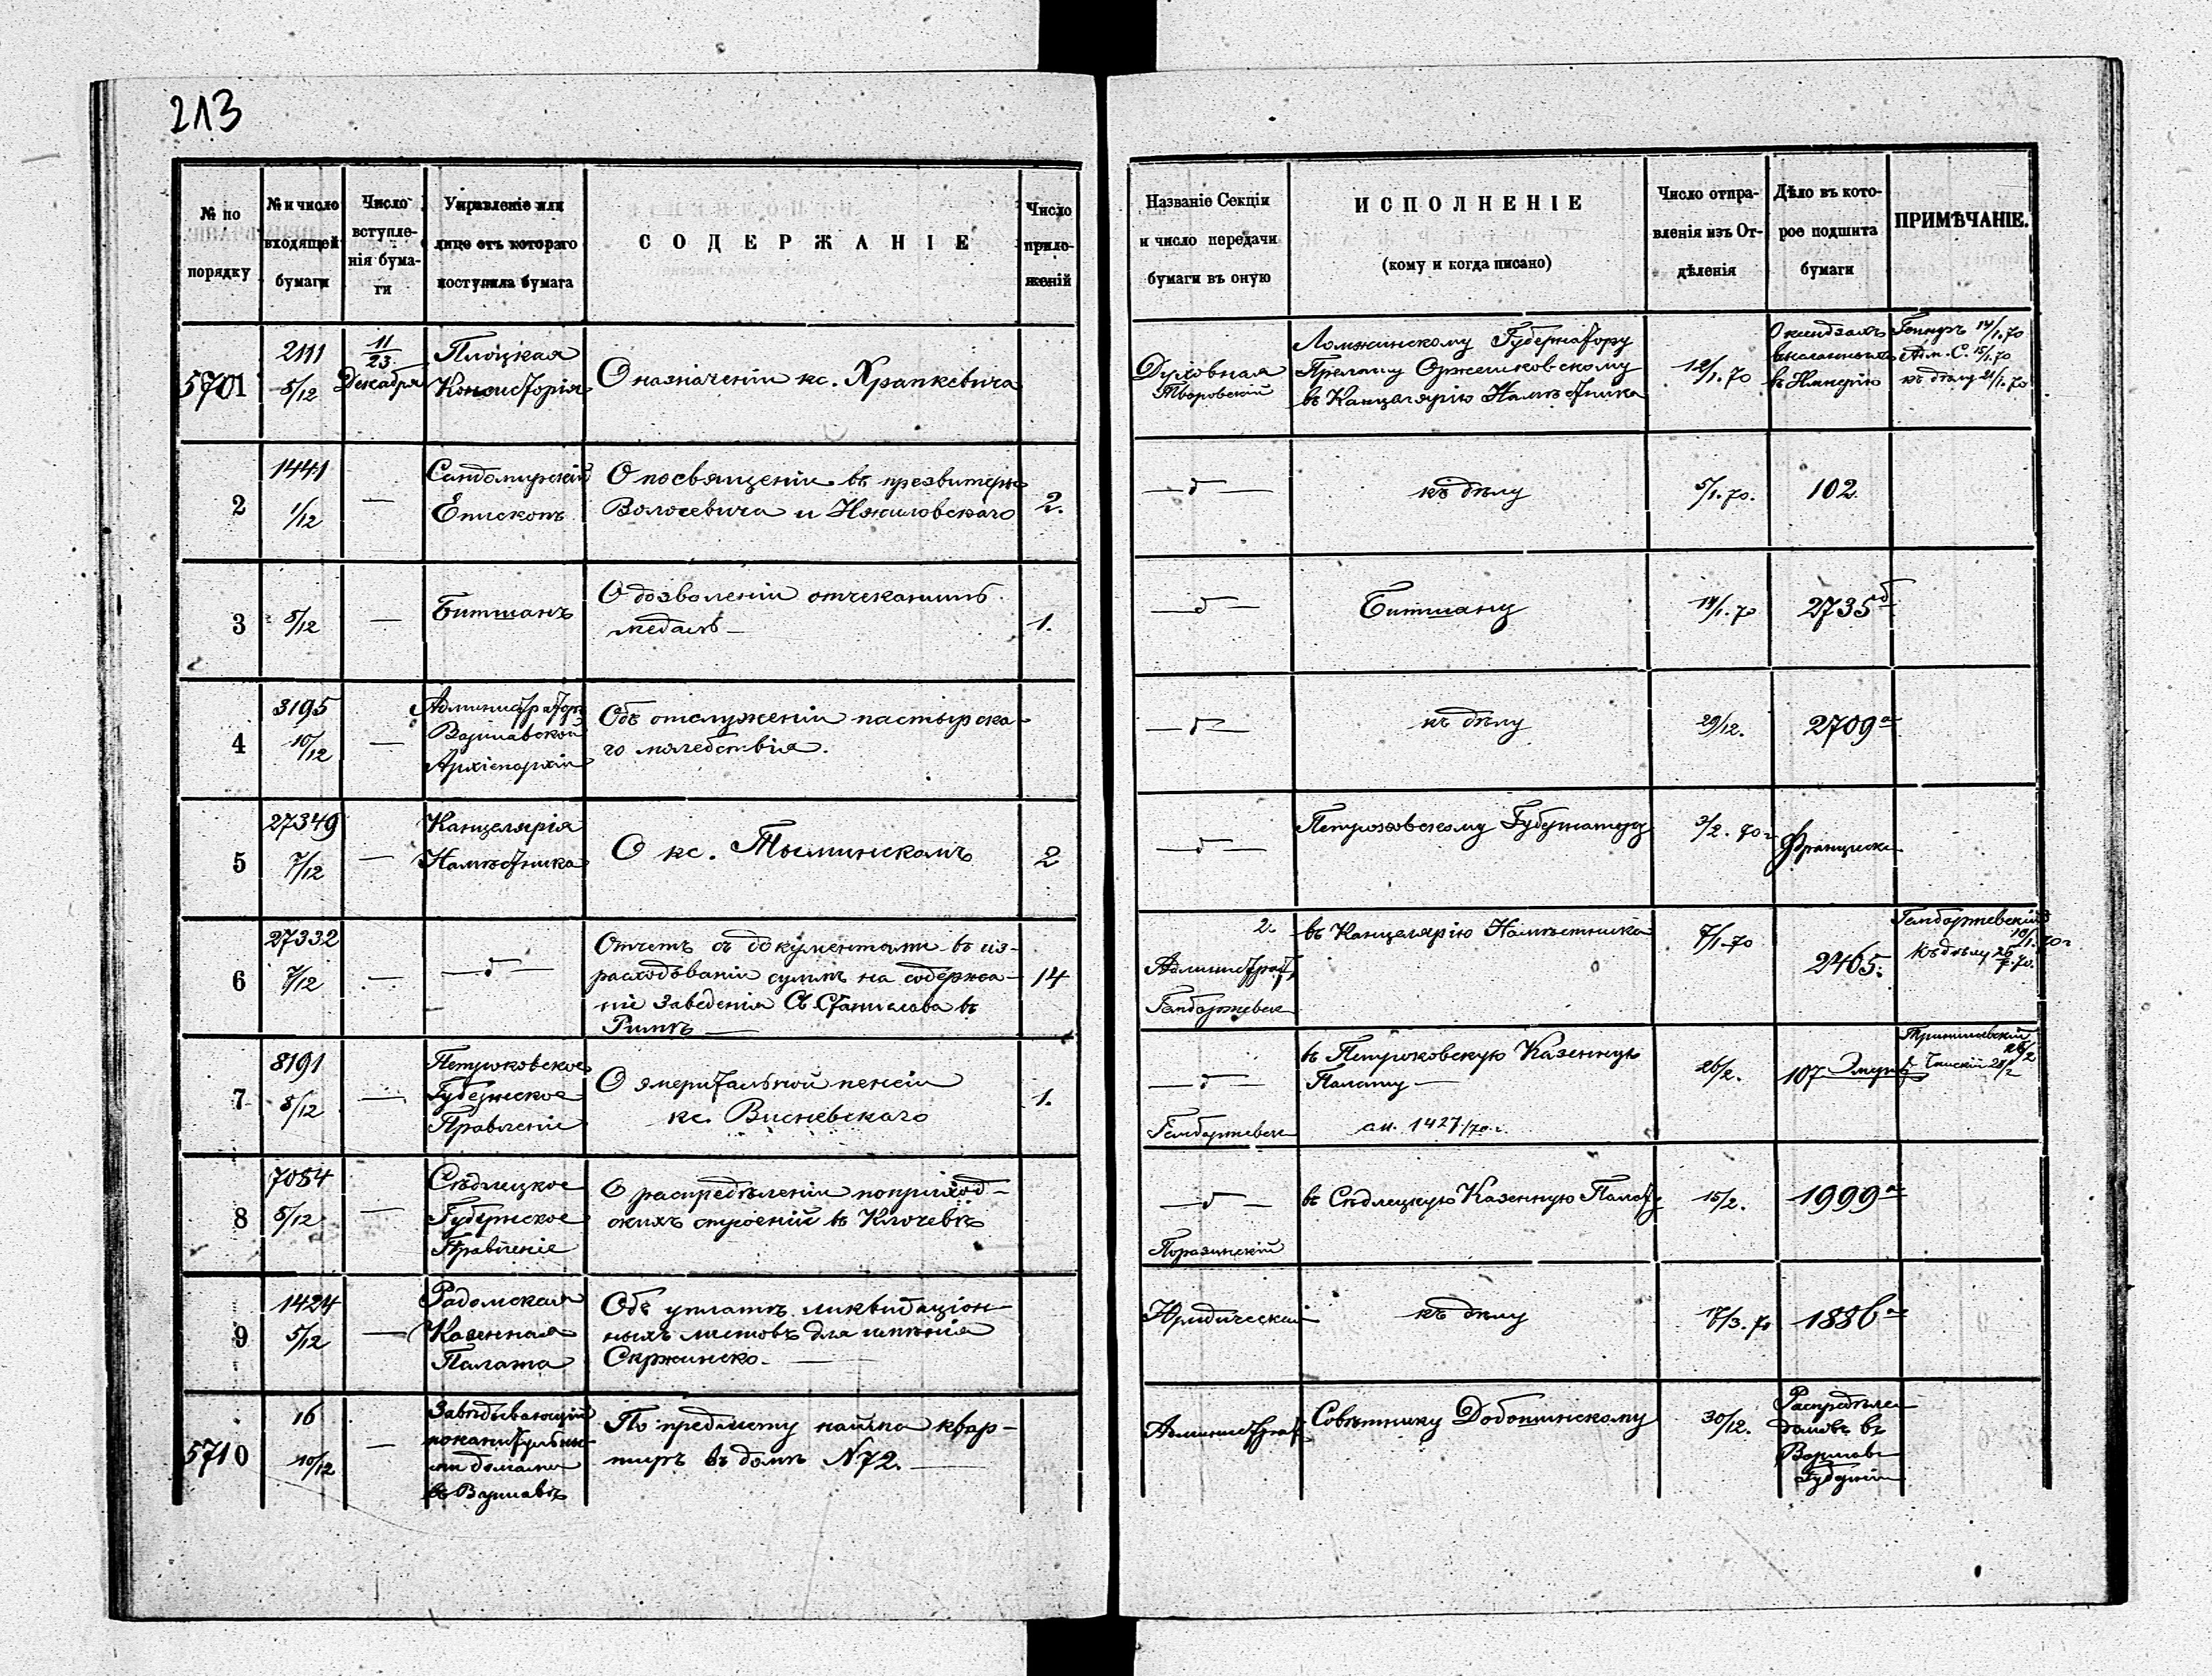 213
№ по порядку
№ и число входящей бумаги
Число вступле-нія бума-ги
Управленіе или лице отъ котораго поступила бумага
СОДЕРЖАНІЕ
Число прило-женій
Названіе Секціи и число передачи бумаги въ оную
ИСПОЛНЕНІЕ
(кому и когда писано)
Число отпра-вленія изъ От-дѣленія
Дѣло въ кото-рое подшита бумаги
ПРИМѢЧАНІЕ.
5701
2111
5/12
11/23 Декабря
Плоцкая
Консисторія
О назначеніи кс. Храпкевича
Духовная
Ломжинскому Губернатору
Прелату Оржешковскому
въ Канцелярію Намѣстника
12/1. 70
въ Имперію
14/1. 70
15/1. 70
къ дѣлу 21/1. 70
2
1441
1/12
—
Сандомирскій
Епископъ
О посвященіи въ пресвитеры
Волосевича и
2.
— " —
къ дѣлу
5/1. 70.
102.
3
8/12
—
Битшанъ
О дозволеніи отчеканить
медаль —
1.
— " —
Битшану
14/1. 70
2735 б
4
3195
10/12
—
Администраторъ
Варшавской
Архіепархіи
Объ отслуженіи пастырска-
го молебствія.
— " —
къ дѣлу
29/12.
2709 а
5
27349
7/12
—
Канцелярія
Намѣстника
О кс. Тыминскомъ
2
— " —
Петроковскому Губернатору
3/2. 70 г
6
27332
7/12
—
— " —
Отчетъ съ документами въ из-
расходованіи суммъ на содержа-
ніе Заведенія Св. Станислава въ
Римѣ —
14
2.
Администрат.
въ Канцелярію Намѣстника
7/1. 70
2465.
10/1. 70 г
къ дѣлу
7
8191
8/12
—
Петроковское
Губернское
Правленіе
О эмеритальной пенсіи
кс. Висневскаго
1.
— " —
въ Петроковскую Казенную
Палату —
1427/70 г.
26/2.
107
8
7084
5/12
—
Сѣдлецкое
Губернское
Правленіе
О распредѣленіи поприход-
скихъ строеній въ Клочевѣ
— " —
въ Сѣдлецкую Казенную Палату
15/2.
1999 а
9
1424
5/12
—
Радомская
Казенная
Палата
Объ уплатѣ ликвидаціон-
ныхъ листовъ для имѣнія
Скржинско. —
Юридическая
къ дѣлу
17/3. 70
1886 а
5710
16
10/12
—
Завѣдывающій
домами
въ Варшавѣ
По предмету найма квар-
тиръ въ домѣ N 72. —
Администрат.
Совѣтнику Добошинскому
30/12.
домовъ въ